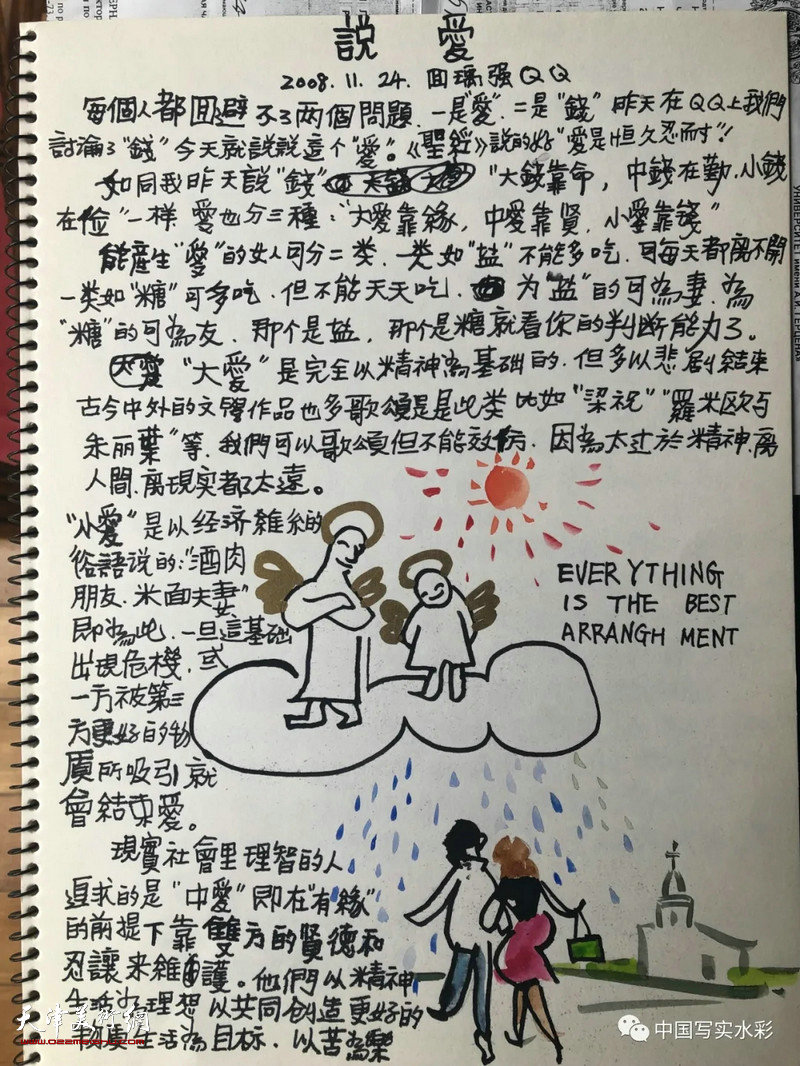 説 愛
2008.11.24. 面璃强QQ
每個人都回避不了两個問題.一是“愛”.二是“錢” 昨天在QQ上我們
討論了“錢”今天就説説這个“愛”。《聖經》説的好“愛是恒久忍耐”!
如同我昨天説“錢” “大錢靠命，中錢在勤.小錢
在俭”一样.愛也分三種:“大愛靠緣，中愛靠賢.小愛靠錢”
能産生“愛”的女人可分二类.一类如“盐”不能多吃.可每天都离不開
一类如“糖”可多吃.但不能天天吃. 为“盐”的可為妻.為
“糖”的可為友.那个是盐，那个是糖就看你的判断能力了。
“大愛”是完全以精神為基础的.但多以悲剧結束
古今中外的文學作品也多歌頌是是此类 比如“梁祝”“羅米欧与
朱丽葉”等.我們可以歌頌但不能效仿.因為太过於精神.离
人間.离現实都太遠。
“小愛”是以经济維糸的
俗語説的:“酒肉
朋友.米面夫妻”
即為此.一旦這基础
出現危機.或
一方被第三
方更好的物
質所吸引就
會結束愛。
現實社會里理智的人
追求的是“中愛”即在“有緣”
的前提下靠雙方的賢德和
忍讓来維護。他們以精神
生活为理想以共同创造更好的
物质生活為目标.以苦為樂
EVERYTHING
IS THE BEST
ARRANGH MENT
天津美術網
中国写实水彩